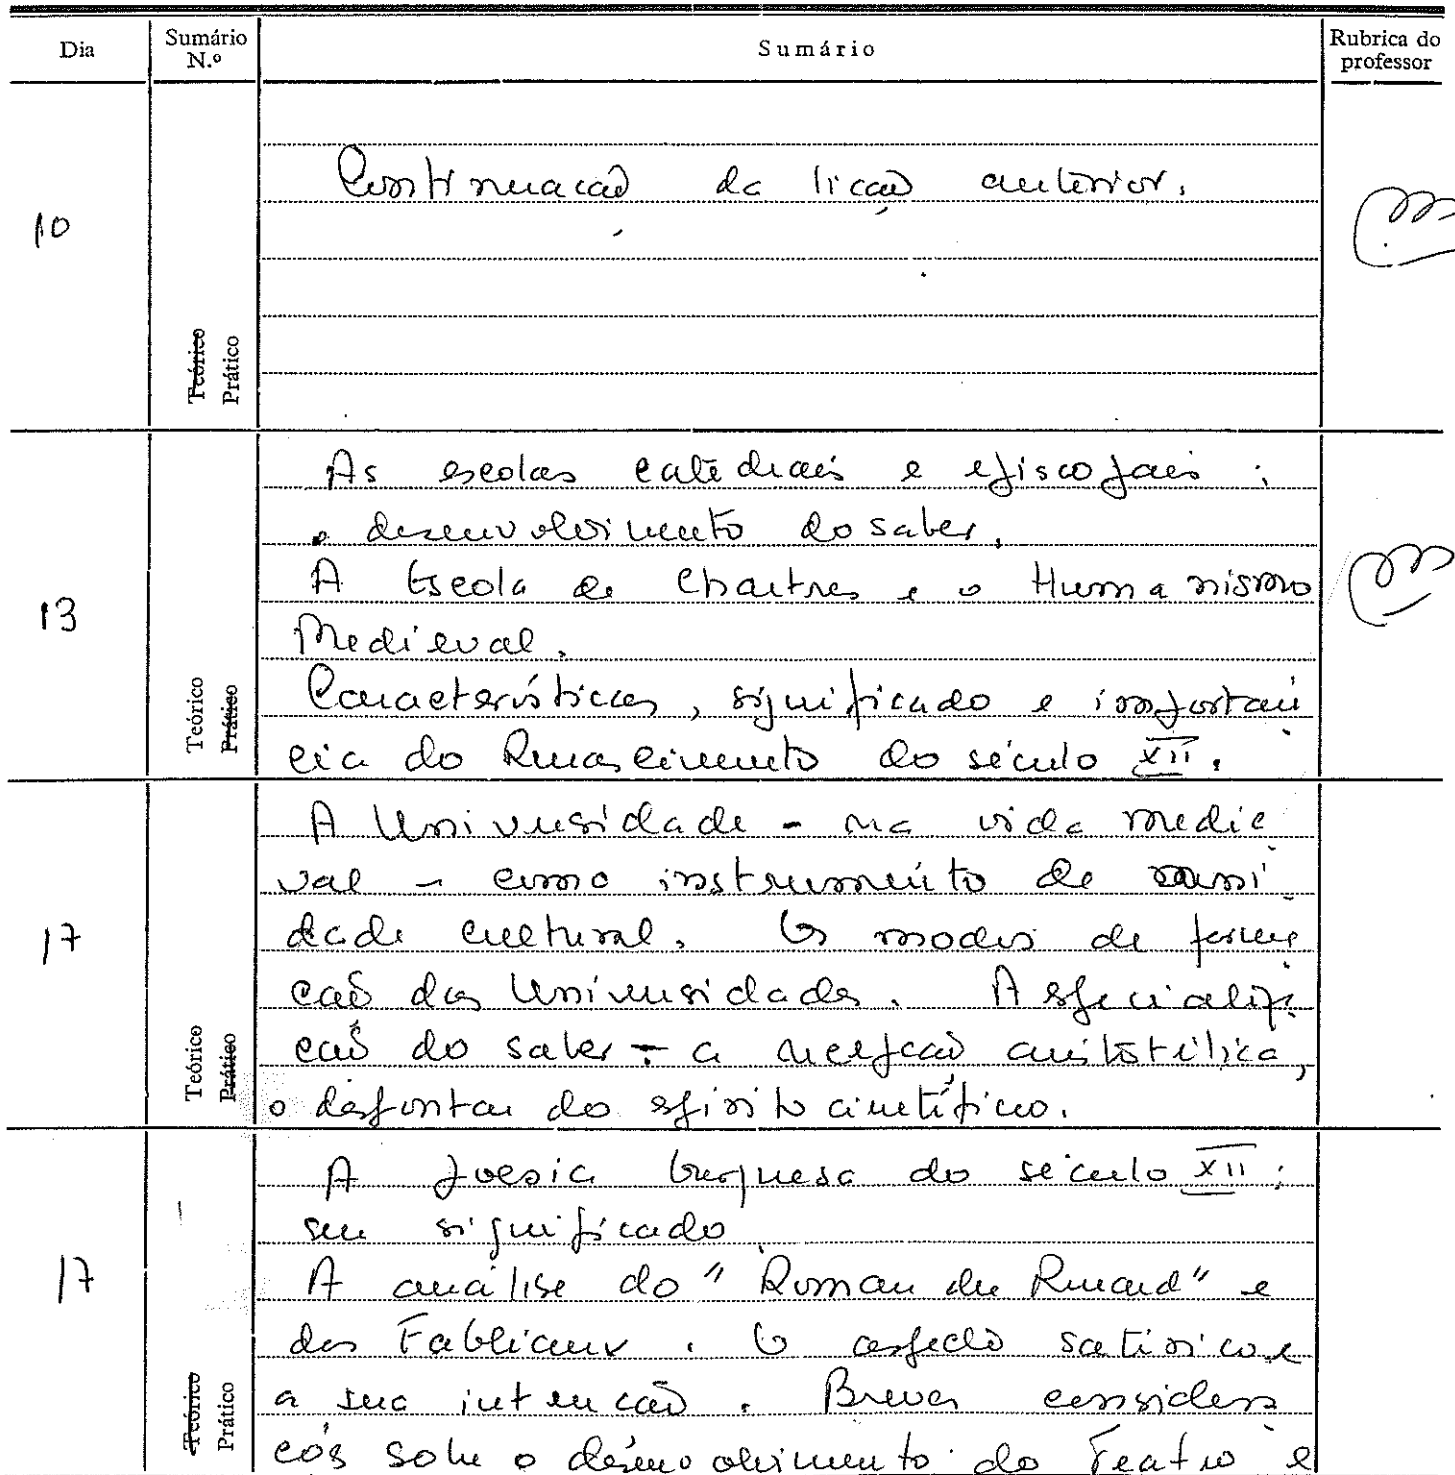 Dia
Sumário N.º
Sumário
Rubrica do professor
10
Teórico
Prático
Continuação da lição anterior.
13
Teórico
Prático
As escolas catedrais e episcopais:
o desenvolvimento do saber.
A Escola de Chartres e o Humanismo
Medieval.
Características, significado e importân
cia do Renascimento do século XII.
17
Teórico
Prático
A Universidade - na vida medie
val - como instrumento de uni
dade cultural. Os modos de forma
ção das Universidades. A especializa
ção do saber - a recepção aristotélica,
o despontar do espírito científico.
17
Teórico
Prático
A poesia burguesa do século XII:
seu significado
A análise do "Roman du Renard" e
dos Fabliaux. O aspecto satírico e
a sua intenção. Breves considera
ções sobre o desenvolvimento do Teatro e